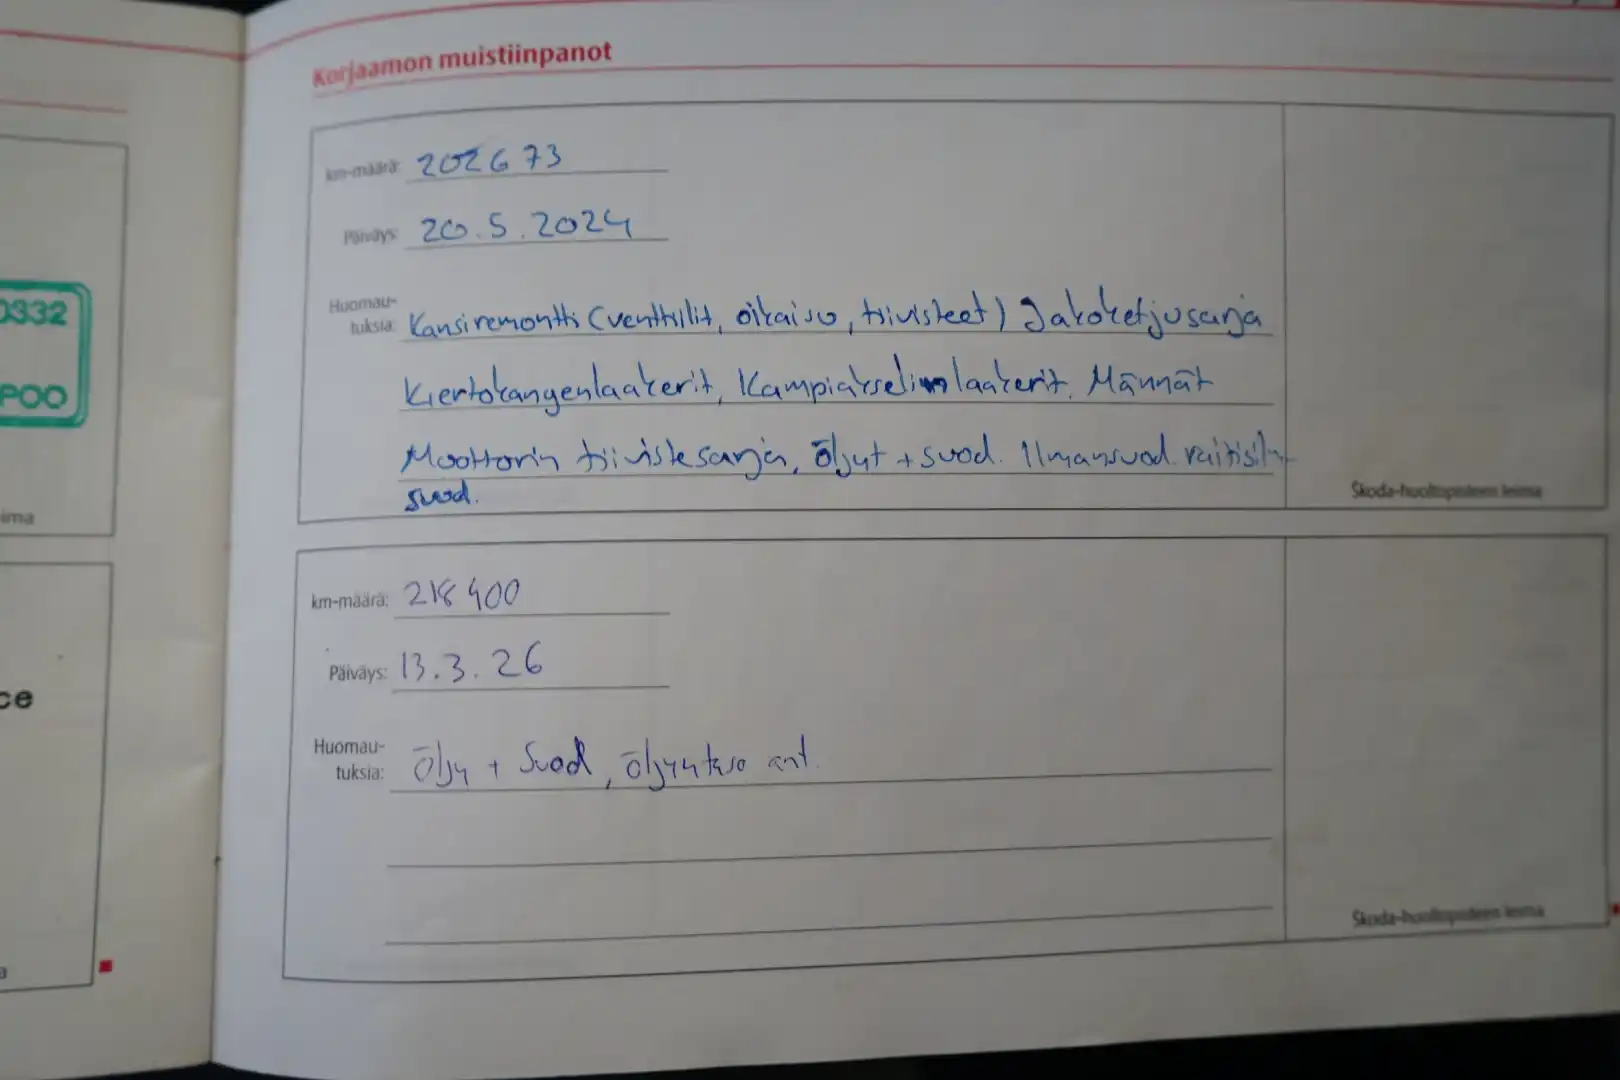 0332
POO
ima
ce
a
Korjaamon muistiinpanot
km-määrä: 202673
Päiväys: 20.5.2024
Huomau-
tuksia: Kansiremontti (venttilit, oikaisu, tiivisteet) Jakoketjusarja
Kiertokangenlaakerit, Kampiakselinlaakerit, Männät
Moottorin tiivistesarja, öljyt + suod. Ilmansuod. raitisilm
suod.
Skoda-huoltopisteen leima
km-määrä: 218400
Päiväys: 13.3.26
Huomau-
tuksia: Öljy + Suod, öljyntaso ant.
Skoda-huoltopisteen leima